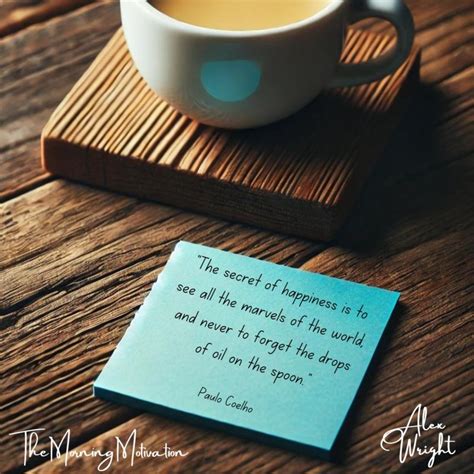 "The secret of happiness is to
see all the marvels of the world,
and never to forget the drops
of oil on the spoon."
Paulo Coelho
The Morning Motivation
Alex
Wright